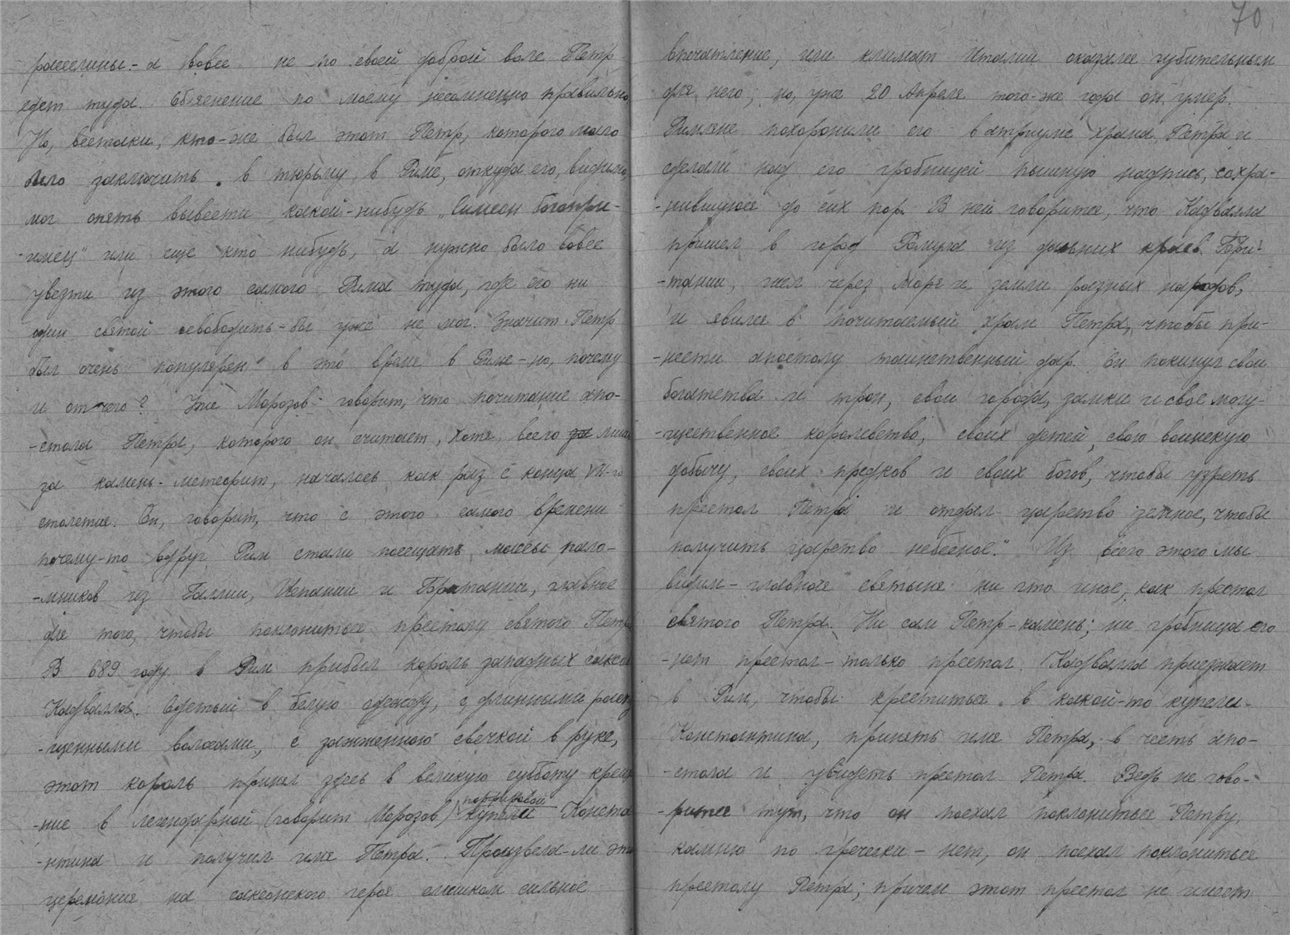 расселины - а вовсе не по своей доброй воле Петр
едет туда. Объяснение по моему несомненно правильно
Но, всетаки, кто-же был этот Петр, которого мало
было заключить в тюрьму в Риме, откуда его, видимо,
мог опять вывести какой-нибудь „Симеон богопри-
-имец" или еще кто нибудь, а нужно было вовсе
увезти из этого самого Рима туда, где его ни
один святой освободить-бы уже не мог. Значит Петр
был очень популярен в это время в Риме - но, почему
и отчего? Уже Морозов говорит, что почитание апо-
-стола Петра, которого он считает, хотя всего за лишь
за камень-метеорит, началось как раз с конца VII-го
столетия. Он, говорит, что с этого самого времени
почему-то вдруг Рим стали посещать массы пало-
-мников из Галлии, Испании и Британии, главное
для того, чтобы поклониться престолу святого Петра
В 689 году в Рим прибыл король западных саксов
Кадвалла. Одетый в белую одежду, с длинными распу
-щенными волосами, с зажженною свечкой в руке,
этот король принял здесь в великую субботу креще
-ние в легендарной (говорит Морозов) порфировой купели Конста
-нтина и получил имя Петра. Произвела-ли эта
церемония на саксонского героя слишком сильное
70
впечатление, или климат Италии оказали губительным
для него; но, уже 20 Апреля того-же года он умер.
Римляне похоронили его в атриуме храма Петра и
сделали над его гробницей пышную надпись, сохра-
-нившуюся до сих пор. В ней говорится, что Кадвалла
пришел в город Ромула из дальних краев Бри-
-тании, шел через моря и земли разных народов,
и явился в почитаемый храм Петра, чтобы при-
-нести апостолу таинственный дар. Он покинул свои
богатства и трон, свои города, замки и свое могу-
-щественное королевство, своих детей, свою воинскую
добычу, своих предков и своих богов, чтобы узреть
престол Петра и отдал царство земное, чтобы
получить царство небесное." Из всего этого мы
видим - главное святыня ни что иное, как престол
святого Петра. Ни сам Петр-камень; ни гробница его
-нет престол - только престол. Кадвалла приезжает
в Рим, чтобы креститься в какой-то купели
Константина, принять имя Петра, в честь апо-
-стола и увидеть престол Петра. Ведь не гово-
-рится тут, что он поехал поклониться Петру,
камню по гречески - нет, он поехал поклониться
престолу Петра; причем этот престол не имеет